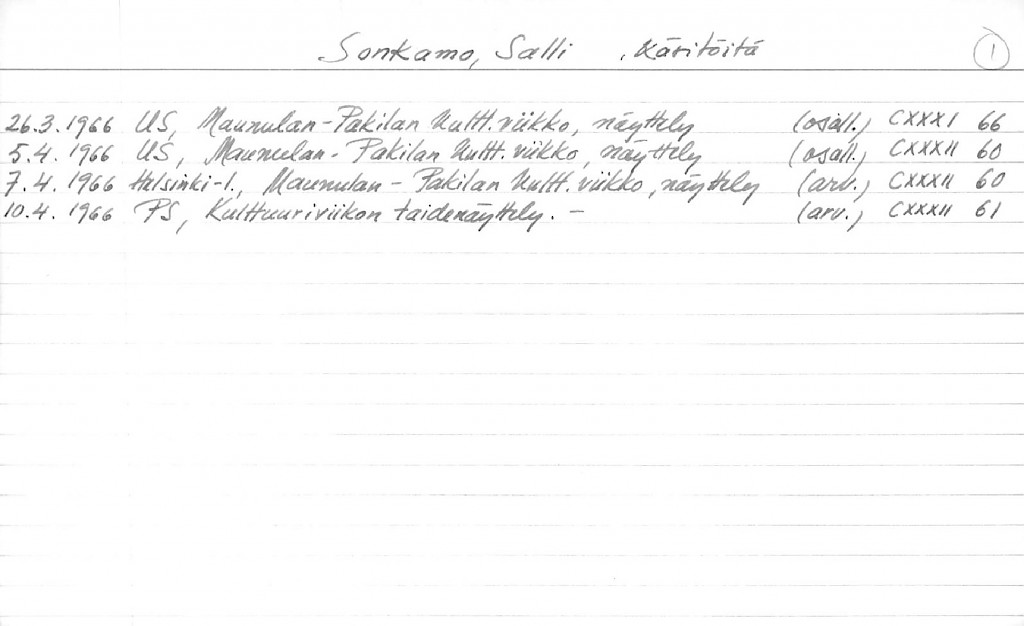 Sonkamo, Salli . Käsitöitä 1
26.3.1966 US, Maunulan-Pakilan Kultt.viikko, näyttely (osall.) CXXXI 66
5.4.1966 US, Maunulan-Pakilan Kultt.viikko, näyttely (osall.) CXXXII 60
7.4.1966 Helsinki-l., Maunulan-Pakilan Kultt.viikko, näyttely (arv.) CXXXII 60
10.4.1966 PS, Kulttuuriviikon taidenäyttely. - (arv.) CXXXII 61